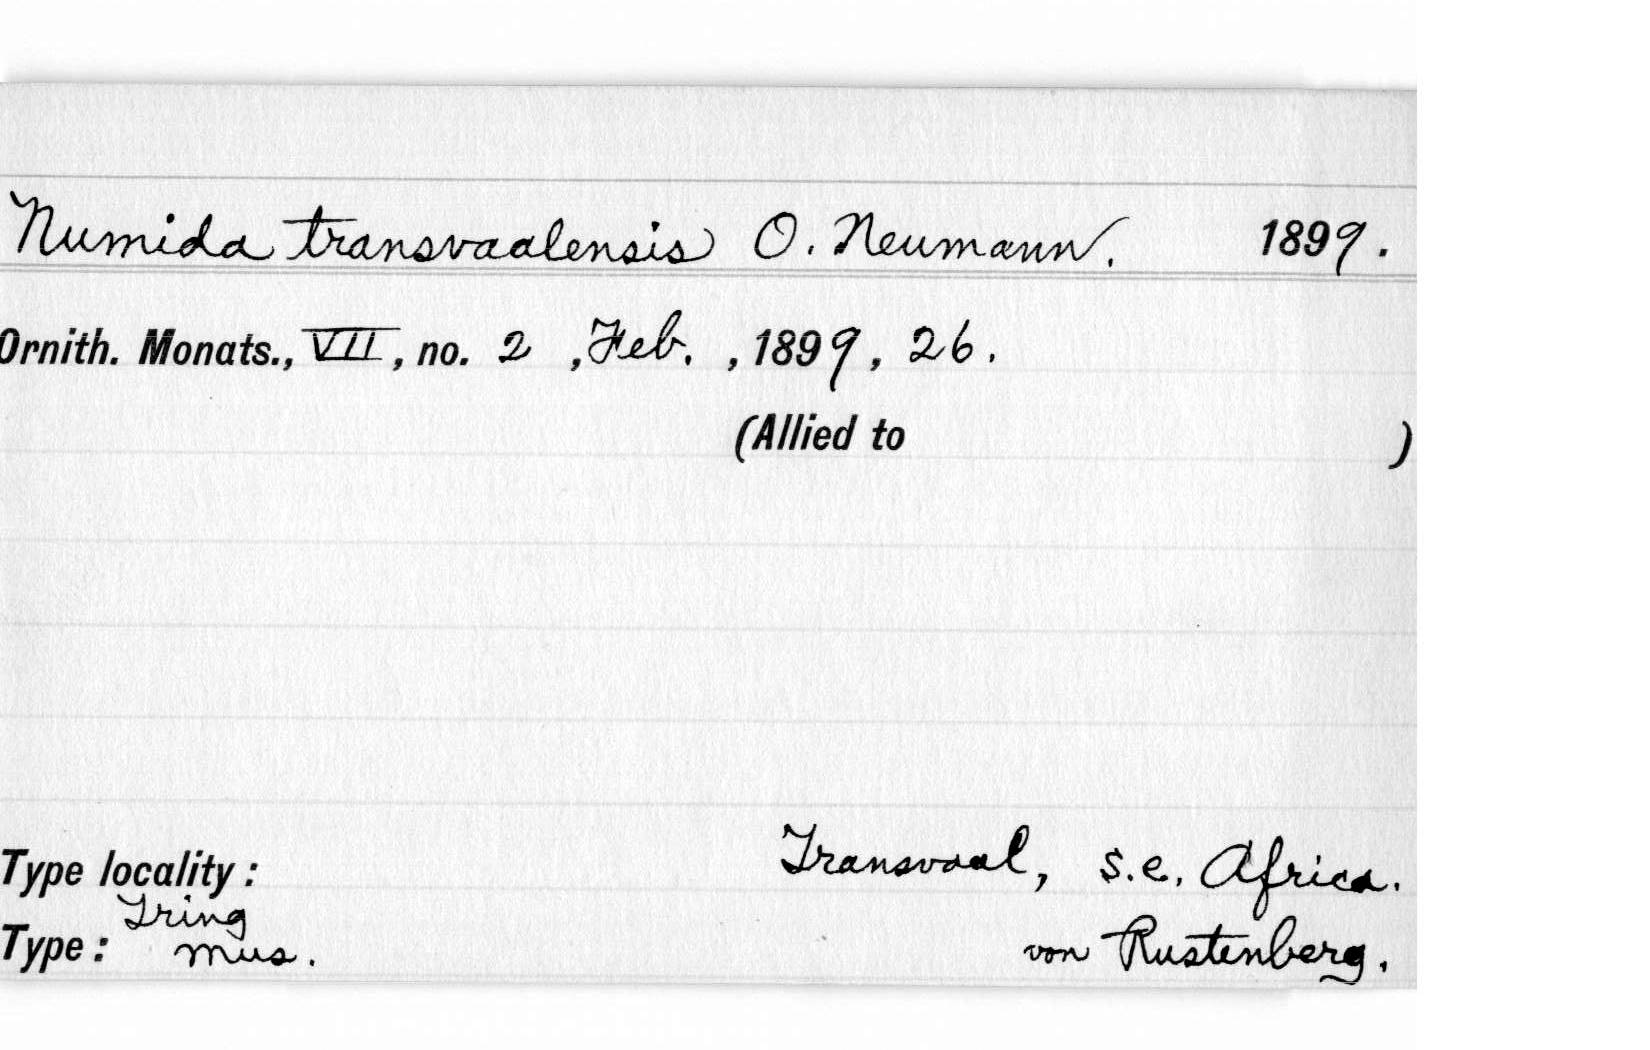 Numida transvaalensis O. Neumann. 1899.
Ornith. Monats., VII, no. 2 , Feb. , 1899, 26.
(Allied to )
Type locality : Transvaal, s.e. Africa.
Type : Tring Mus. von Rustenberg.